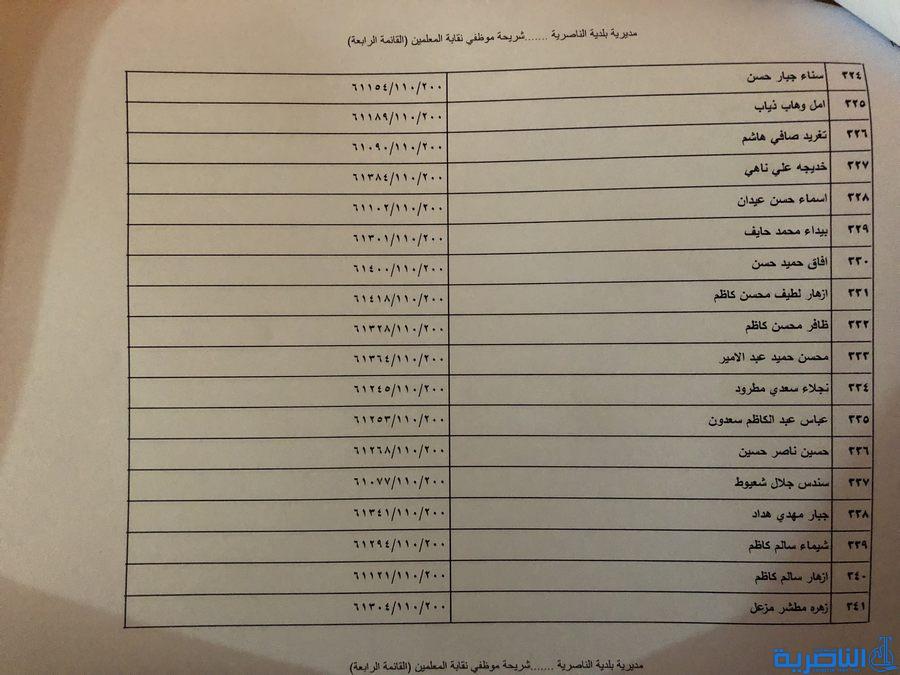 مديرية بلدية الناصرية .......شريحة موظفي نقابة المعلمين (القائمة الرابعة)
٣٢٤ سناء جبار حسن ٦١١٥٤/١١٠/٢٠٠
٣٢٥ امل وهاب ذياب ٦١١٨٩/١١٠/٢٠٠
٣٢٦ تغريد صافي هاشم ٦١٠٩٠/١١٠/٢٠٠
٣٢٧ خديجه علي ناهي ٦١٣٨٤/١١٠/٢٠٠
٣٢٨ اسماء حسن عيدان ٦١١٠٢/١١٠/٢٠٠
٣٢٩ بيداء محمد حايف ٦١٣٠١/١١٠/٢٠٠
٣٣٠ افاق حميد حسن ٦١٤٠٠/١١٠/٢٠٠
٣٣١ ازهار لطيف محسن كاظم ٦١٤١٨/١١٠/٢٠٠
٣٣٢ ظافر محسن كاظم ٦١٣٢٨/١١٠/٢٠٠
٣٣٣ محسن حميد عبد الامير ٦١٣٦٤/١١٠/٢٠٠
٣٣٤ نجلاء سعدي مطرود ٦١٢٤٥/١١٠/٢٠٠
٣٣٥ عباس عبد الكاظم سعدون ٦١٢٥٣/١١٠/٢٠٠
٣٣٦ حسين ناصر حسين ٦١٢٦٨/١١٠/٢٠٠
٣٣٧ سندس جلال شعيوط ٦١٠٧٧/١١٠/٢٠٠
٣٣٨ جبار مهدي هداد ٦١٣٤١/١١٠/٢٠٠
٣٣٩ شيماء سالم كاظم ٦١٢٩٤/١١٠/٢٠٠
٣٤٠ ازهار سالم كاظم ٦١١٢١/١١٠/٢٠٠
٣٤١ زهره مطشر مزعل ٦١٣٠٤/١١٠/٢٠٠
مديرية بلدية الناصرية .......شريحة موظفي نقابة المعلمين (القائمة الرابعة)
الناصرية